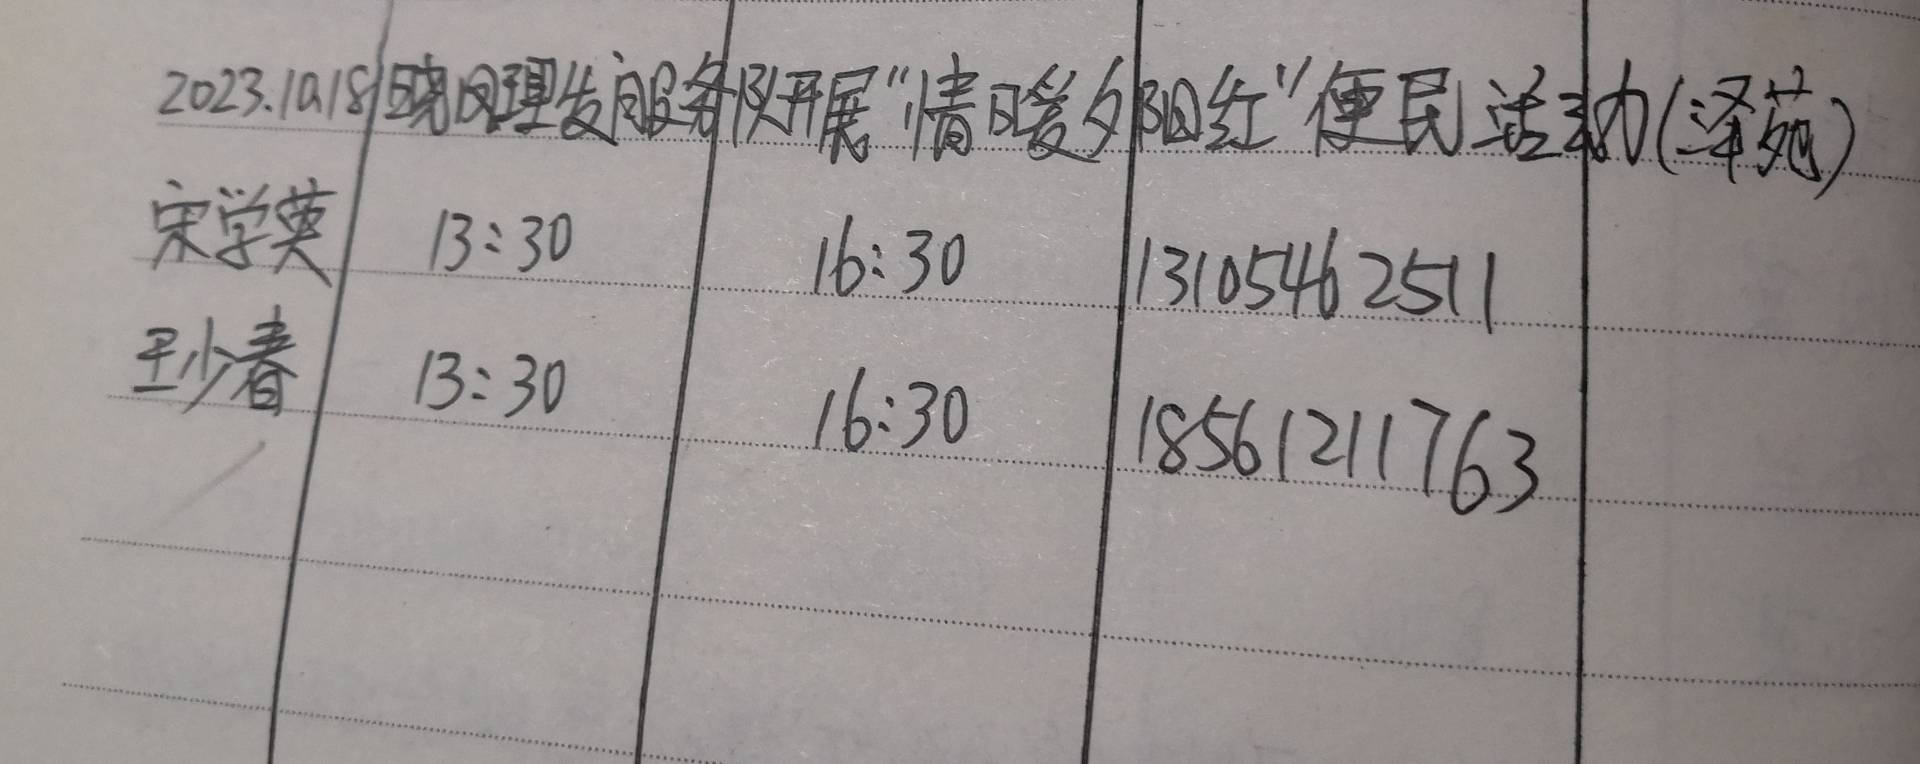 2023.10.18晓园理发服务队开展“情暖夕阳红”便民活动(泽苑)
宋学英 13:30 16:30 13105462511
王少春 13:30 16:30 18561211763